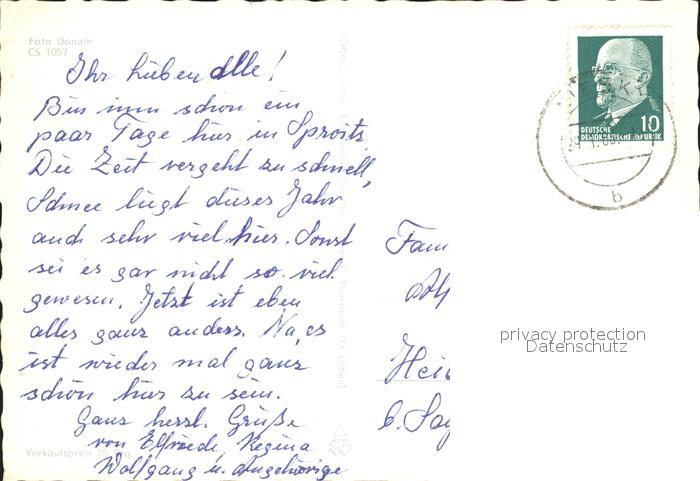 Foto Donath
CS 1057
Ihr lieben alle!
Bin nun schon ein
paar Tage hier in Sproitz.
Die Zeit vergeht zu schnell,
Schnee liegt dieses Jahr
auch sehr viel hier. Sonst
sei es gar nicht so viel
gewesen. Jetzt ist eben
alles ganz anders. Na, es
ist wieder mal ganz
schön hier zu sein.
Ganz herzl. Grüße
von Elfriede, Regina
Wolfgang u. Angehörige
Verkaufspreis 25 Pfg.
Ebersbach (Kr Löbau)
DEUTSCHE 10
DEMOKRATISCHE REPUBLIK
b
Fam
Hei
b. Say
privacy protection
Datenschutz